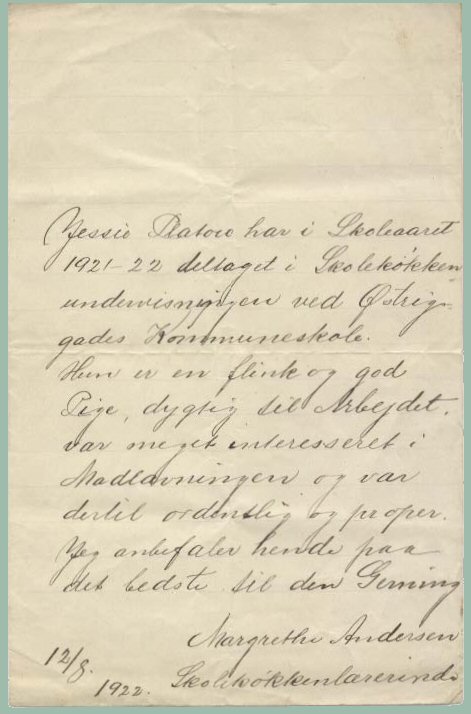 Jessie Platow har i Skoleaaret
1921-22 deltaget i Skolekøkken
undervisningen ved Østrig-
gades Kommuneskole.
Hun er en flink og god
Pige, dygtig til Arbejdet,
var meget interesseret i
Madlavningen og var
dertil ordentlig og proper.
Jeg anbefaler hende paa
det bedste til den Gerning
Margrethe Andersen
Skolekøkkenlærerinde
12/8.
1922.